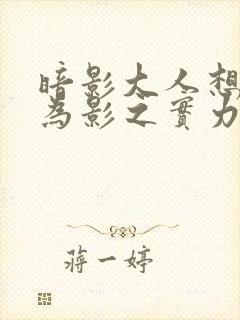 暗影大人想
為影之實力
蔣一婷